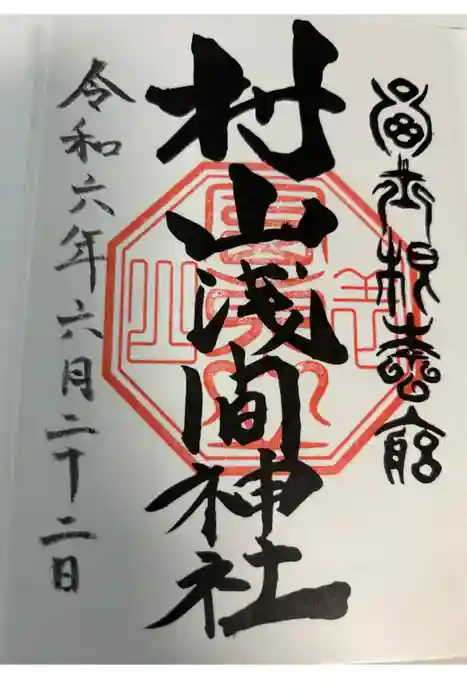 冨士根本宮
村山浅間神社
令和六年六月二十二日